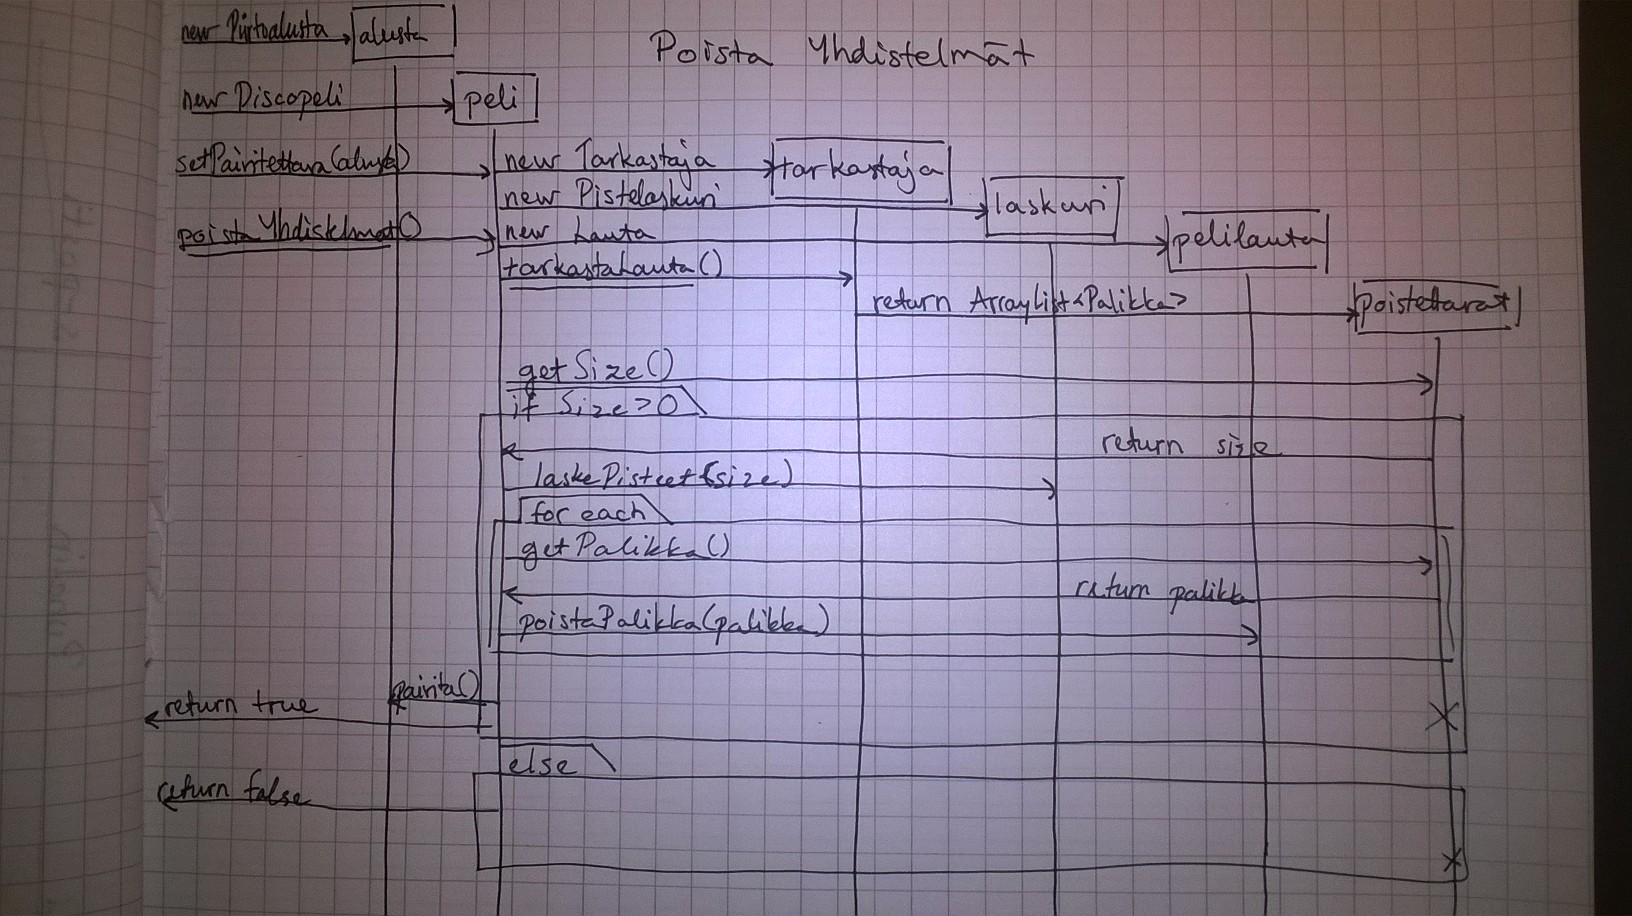 new Piirtoalusta alusta
Poista Yhdistelmät
new Discopeli peli
setPäivitettävä(alusta) new Tarkastaja tarkastaja
new Pistelaskuri laskuri
poistaYhdistelmät() new Lauta pelilauta
tarkastaLauta()
return ArrayList<Palikka> poistettavat
getSize()
if Size>0
return size
laskePisteet(size)
for each
getPalikka()
return palikka
poistaPalikka(palikka)
päivitä()
return true
else
return false